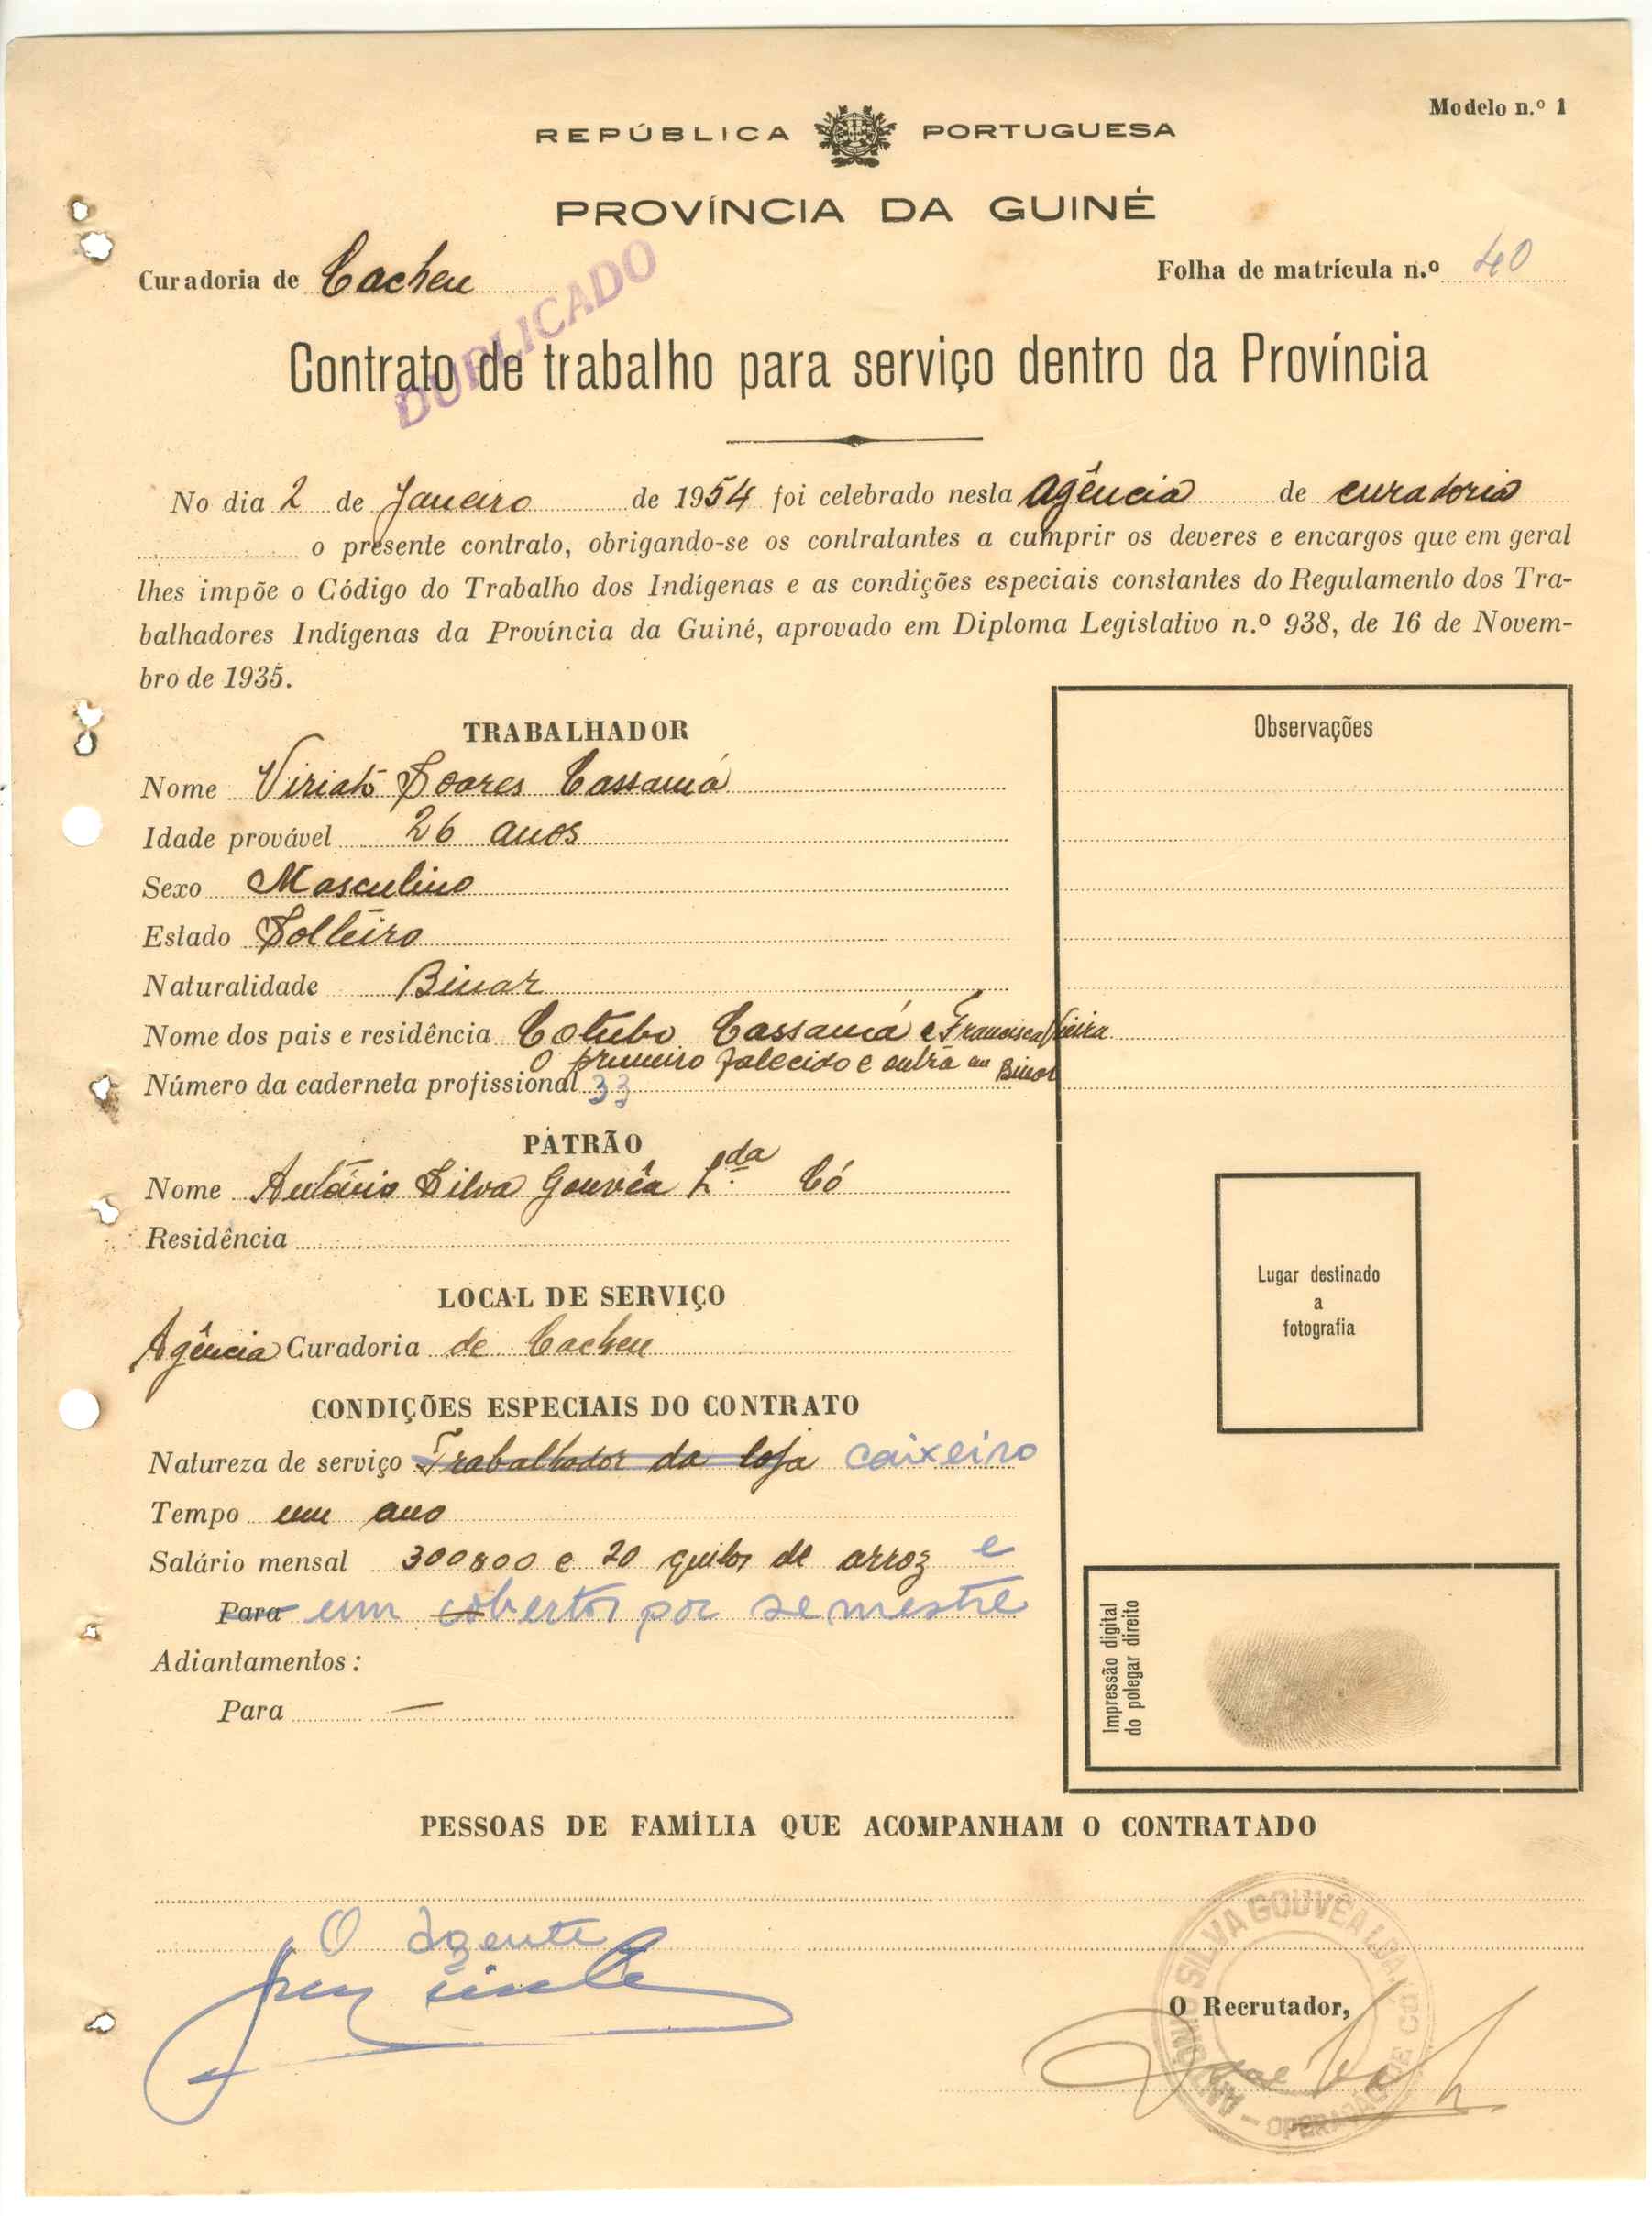 Modelo n.º 1
REPÚBLICA PORTUGUESA
PROVÍNCIA DA GUINÉ
Curadoria de Cacheu
Folha de matrícula n.º 40
DUPLICADO
Contrato de trabalho para serviço dentro da Província
No dia 2 de Janeiro de 1954 foi celebrado nesta Agência de curadoria
o presente contrato, obrigando-se os contratantes a cumprir os deveres e encargos que em geral
lhes impõe o Código do Trabalho dos Indígenas e as condições especiais constantes do Regulamento dos Tra-
balhadores Indígenas da Província da Guiné, aprovado em Diploma Legislativo n.º 938, de 16 de Novem-
bro de 1935.
TRABALHADOR
Observações
Nome Viriato Soares Cassamá
Idade provável 26 anos
Sexo Masculino
Estado Solteiro
Naturalidade Binar
Nome dos pais e residência Cotubo Cassamá e Francisca Vieira
O primeiro falecido e outra em Binar
Número da caderneta profissional 33
PATRÃO
Nome António Silva Gouvêa L.da Có
Residência
Lugar destinado
a
fotografia
LOCAL DE SERVIÇO
Agência Curadoria de Cacheu
CONDIÇÕES ESPECIAIS DO CONTRATO
Natureza de serviço Trabalhador da loja caixeiro
Tempo um ano
Salário mensal 300$00 e 20 quilos de arroz e
Para um cobertor por semestre
Adiantamentos:
Para —
Impressão digital
do polegar direito
PESSOAS DE FAMÍLIA QUE ACOMPANHAM O CONTRATADO
O Agente
O Recrutador,
ANTÓNIO SILVA GOUVEA LDA. - OPERAÇÃO DE CÓ